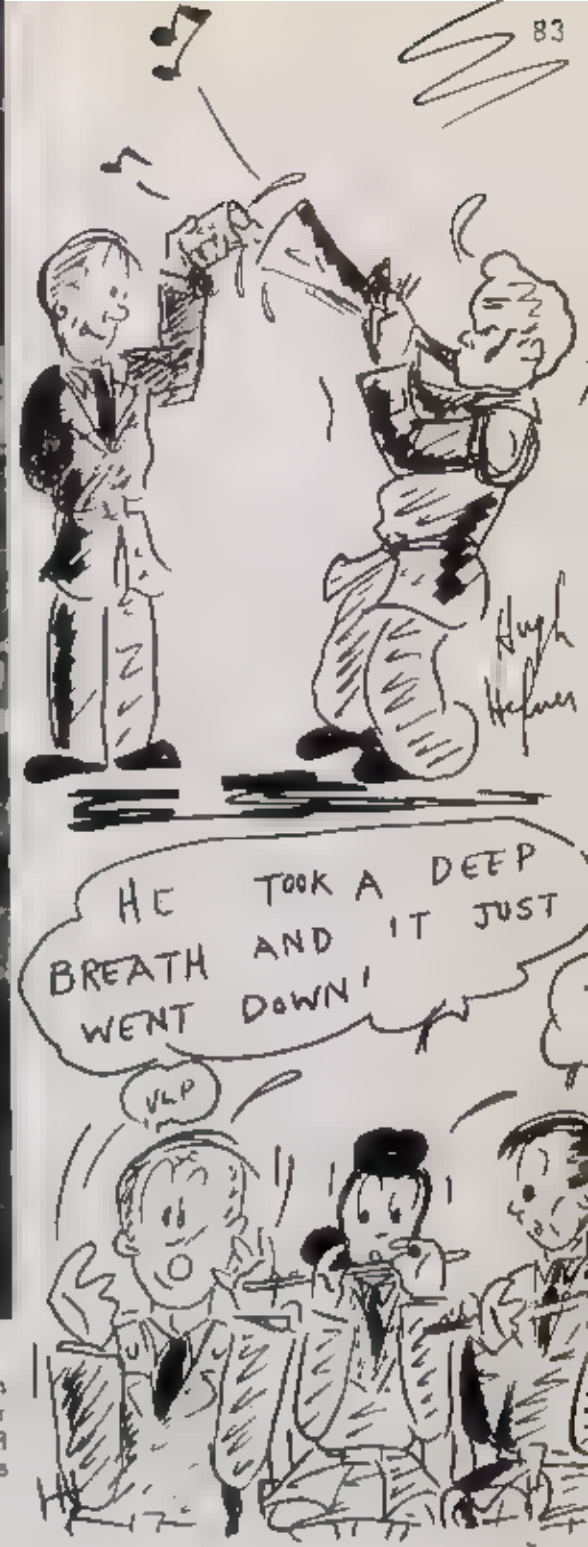 83
Hugh
Hefner
HE TOOK A DEEP
BREATH AND IT JUST
WENT DOWN!